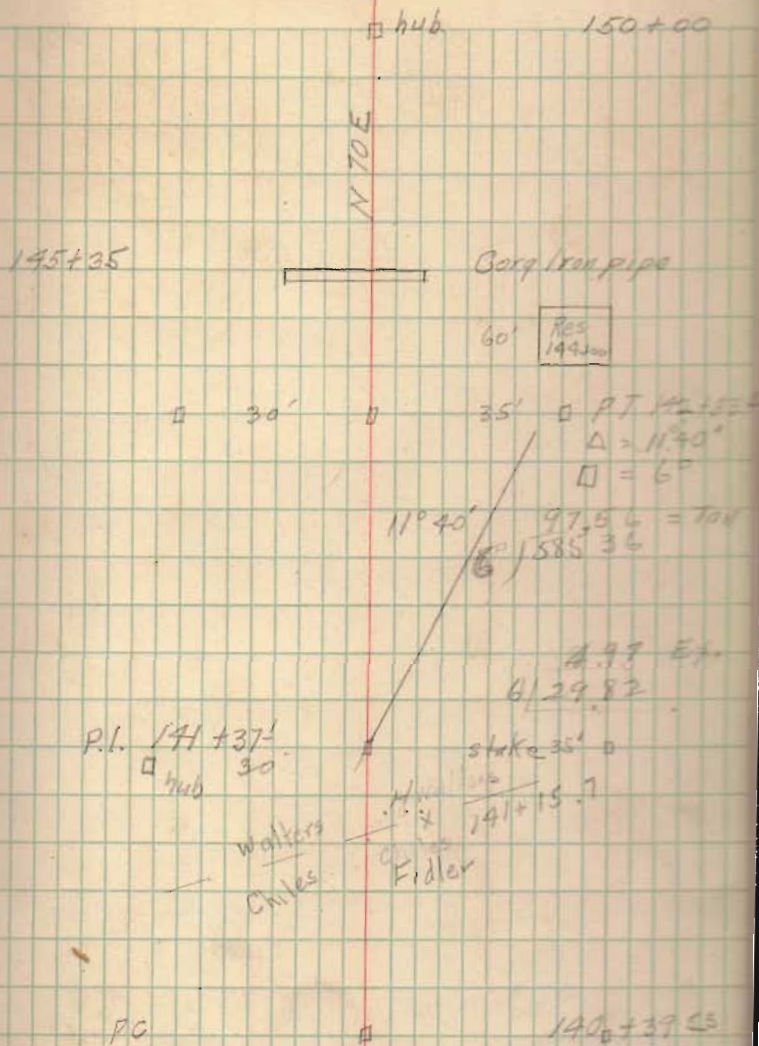 hub 150+00
N 70 E
145+35 Corg Iron pipe
60' Res
144+00
30' 35' PT
Δ = 11°40'
= 6°
11°40' 97.56 = Tan
6 ) 585 36
4.97 Ex.
6 ) 29.82
P.I. 141+37 stake 35'
hub 30
H. 141+15.7
Walters x
Chiles Fidler
PC 140+39